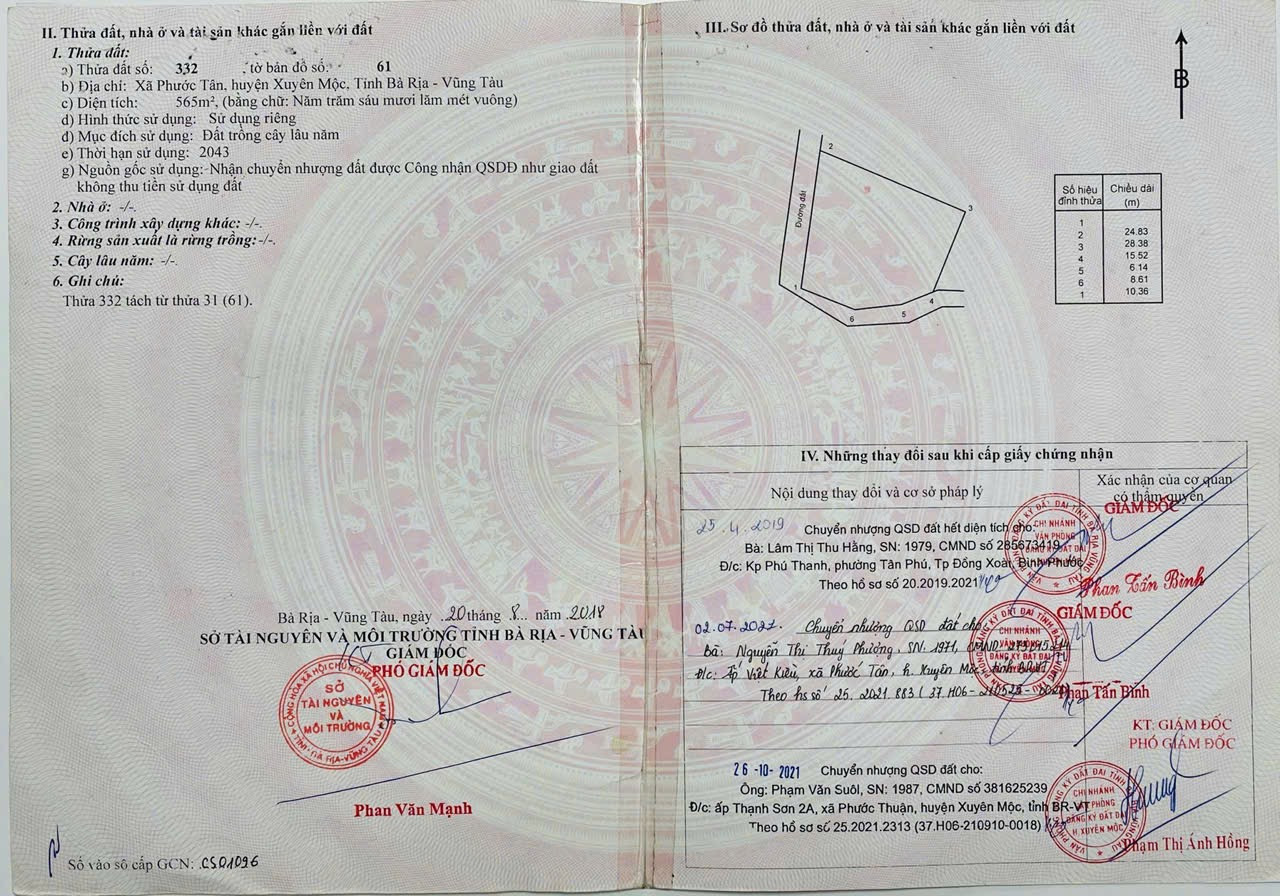 II. Thửa đất, nhà ở và tài sản khác gắn liền với đất
1. Thửa đất:
a) Thửa đất số: 332 , tờ bản đồ số: 61
b) Địa chỉ: Xã Phước Tân, huyện Xuyên Mộc, Tỉnh Bà Rịa - Vũng Tàu
c) Diện tích: 565m², (bằng chữ: Năm trăm sáu mươi lăm mét vuông)
d) Hình thức sử dụng: Sử dụng riêng
đ) Mục đích sử dụng: Đất trồng cây lâu năm
e) Thời hạn sử dụng: 2043
g) Nguồn gốc sử dụng: Nhận chuyển nhượng đất được Công nhận QSDĐ như giao đất
không thu tiền sử dụng đất
2. Nhà ở: -/-.
3. Công trình xây dựng khác: -/-.
4. Rừng sản xuất là rừng trồng: -/-.
5. Cây lâu năm: -/-.
6. Ghi chú:
Thửa 332 tách từ thửa 31 (61).
Bà Rịa - Vũng Tàu, ngày 20 tháng 8 năm 2018
SỞ TÀI NGUYÊN VÀ MÔI TRƯỜNG TỈNH BÀ RỊA - VŨNG TÀU
GIÁM ĐỐC
PHÓ GIÁM ĐỐC
CỘNG HÒA XÃ HỘI CHỦ NGHĨA VIỆT NAM
SỞ
TÀI NGUYÊN
VÀ
MÔI TRƯỜNG
TỈNH BÀ RỊA-VŨNG TÀU
Phan Văn Mạnh
Số vào sổ cấp GCN: CS01096
III. Sơ đồ thửa đất, nhà ở và tài sản khác gắn liền với đất
B
Đường đất
2
3
1
4
5
6
Số hiệu đỉnh thửa Chiều dài (m)
1
24.83
2
28.38
3
15.52
4
6.14
5
8.61
6
10.36
1
IV. Những thay đổi sau khi cấp giấy chứng nhận
Nội dung thay đổi và cơ sở pháp lý
Xác nhận của cơ quan
có thẩm quyền
25.4.2019 Chuyển nhượng QSD đất hết diện tích cho:
Bà: Lâm Thị Thu Hằng, SN: 1979, CMND số 285673419
Đ/c: Kp Phú Thanh, phường Tân Phú, Tp Đồng Xoài, Bình Phước
Theo hồ sơ số 20.2019.2021
GIÁM ĐỐC
CHI NHÁNH
VĂN PHÒNG
ĐĂNG KÝ ĐẤT ĐAI
Phan Tấn Bình
02.07.2021. Chuyển nhượng QSD đất cho
Bà: Nguyễn Thị Thuý Phượng, SN: 1971, CMND
Đ/c: Ấp Việt Kiều, xã Phước Tân, h. Xuyên Mộc, tỉnh BR-VT
Theo hs số 25.2021.883 (37.H06-
GIÁM ĐỐC
CHI NHÁNH
VĂN PHÒNG
ĐĂNG KÝ ĐẤT ĐAI
Phan Tấn Bình
26-10-2021 Chuyển nhượng QSD đất cho:
Ông: Phạm Văn Suôl, SN: 1987, CMND số 381625239
Đ/c: ấp Thạnh Sơn 2A, xã Phước Thuận, huyện Xuyên Mộc, tỉnh BR-VT
Theo hồ sơ số 25.2021.2313 (37.H06-210910-0018)
KT: GIÁM ĐỐC
PHÓ GIÁM ĐỐC
CHI NHÁNH
VĂN PHÒNG
ĐĂNG KÝ ĐẤT ĐAI
H. XUYÊN MỘC
Phạm Thị Ánh Hồng